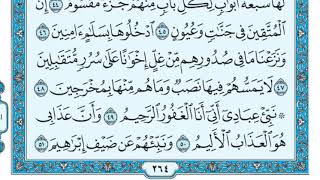 لَهَا سَبْعَةُ أَبْوَابٍ لِكُلِّ بَابٍ مِنْهُمْ جُزْءٌ مَقْسُومٌ ٤٤ إِنَّ
الْمُتَّقِينَ فِي جَنَّاتٍ وَعُيُونٍ ٤٥ ادْخُلُوهَا بِسَلَامٍ آمِنِينَ ٤٦
وَنَزَعْنَا مَا فِي صُدُورِهِمْ مِنْ غِلٍّ إِخْوَانًا عَلَى سُرُرٍ مُتَقَابِلِينَ
٤٧ لَا يَمَسُّهُمْ فِيهَا نَصَبٌ وَمَا هُمْ مِنْهَا بِمُخْرَجِينَ ٤٨
نَبِّئْ عِبَادِي أَنِّي أَنَا الْغَفُورُ الرَّحِيمُ ٤٩ وَأَنَّ عَذَابِي
هُوَ الْعَذَابُ الْأَلِيمُ ٥٠ وَنَبِّئْهُمْ عَنْ ضَيْفِ إِبْرَاهِيمَ ٥١
٢٦٤